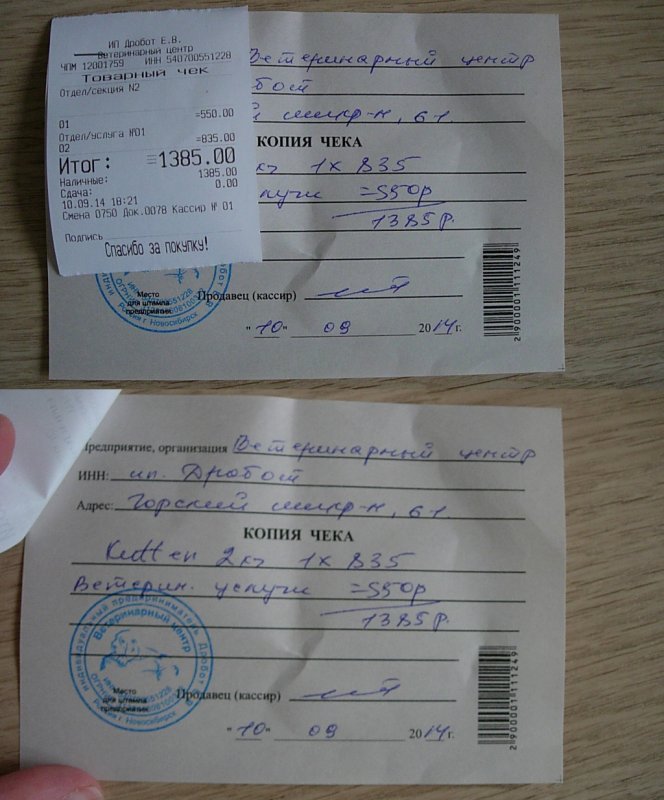 ИП Дробот Е.В.
Ветеринарный центр
ЧПМ 12001759 ИНН 540700551228
Товарный чек
Отдел/секция N2
01 =550.00
Отдел/услуга №01
02 =835.00
Итог: =1385.00
Наличные: 1385.00
Сдача: 0.00
10.09.14 18:21
Смена 0750 Док.0078 Кассир № 01
Подпись
Спасибо за покупку!
Ветеринарный центр
бот
й микр-н, 61
КОПИЯ ЧЕКА
кг 1x 835
луги =550р
1385р.
Место
для штампа
предприятия
Россия г. Новосибирск
Продавец (кассир)
"10" 09 2014 г.
2900001111249
Предприятие, организация Ветеринарный центр
ИНН: ип. Дробот
Адрес: Горский микр-н, 61
КОПИЯ ЧЕКА
Kitten 2кг 1x 835
Ветерин. услуги =550р
1385р.
индивидуальный предприниматель Дробот
Ветеринарный центр
Место
для штампа
предприятия
Россия г. Новосибирск
Продавец (кассир)
"10" 09 2014 г.
2900001111249